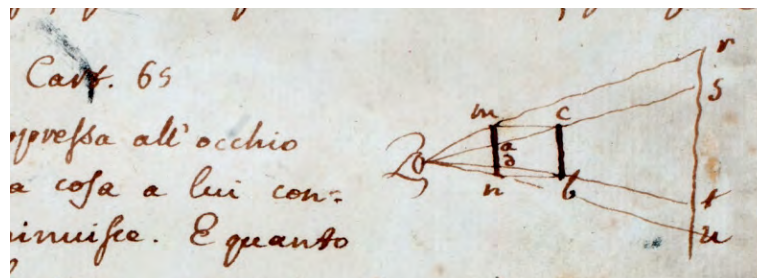 Cart. 65
oppreſsa all' occhio
a coſa a lui con=
minuiſce. E quanto
r
s
m c
a
d
n b
t
u